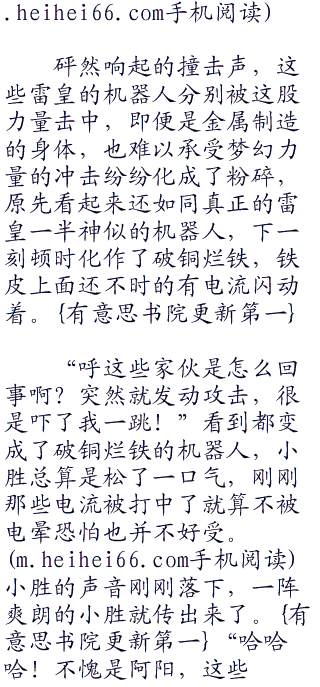 .heihei66.com手机阅读)
砰然响起的撞击声，这
些雷皇的机器人分别被这股
力量击中，即便是金属制造
的身体，也难以承受梦幻力
量的冲击纷纷化成了粉碎，
原先看起来还如同真正的雷
皇一半神似的机器人，下一
刻顿时化作了破铜烂铁，铁
皮上面还不时的有电流闪动
着。{有意思书院更新第一}
“呼这些家伙是怎么回
事啊？突然就发动攻击，很
是吓了我一跳！”看到都变
成了破铜烂铁的机器人，小
胜总算是松了一口气，刚刚
那些电流被打中了就算不被
电晕恐怕也并不好受。
(m.heihei66.com手机阅读)
小胜的声音刚刚落下，一阵
爽朗的小胜就传出来了。{有
意思书院更新第一}“哈哈
哈！不愧是阿阳，这些